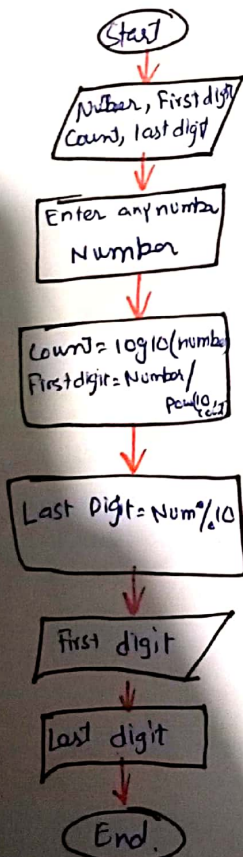 Start
Number, First digit
Count, last digit
Enter any number
Number
Count = log10(number
First digit = Number/
Pow(10,
Last Digit = Num%10
First digit
Last digit
End.